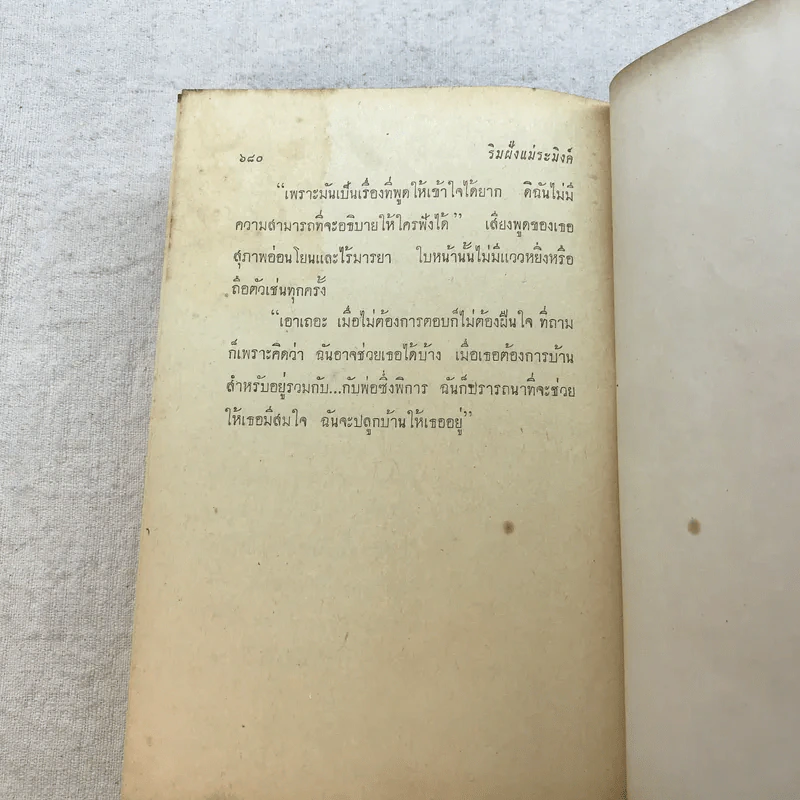 ๖๘๐ ริมฝั่งแม่ระมิงค์
“เพราะมันเป็นเรื่องที่พูดให้เข้าใจได้ยาก ดิฉันไม่มี
ความสามารถที่จะอธิบายให้ใครฟังได้” เสียงพูดของเธอ
สุภาพอ่อนโยนและไร้มารยา ใบหน้านั้นไม่มีแววหยิ่งหรือ
ถือตัวเช่นทุกครั้ง
“เอาเถอะ เมื่อไม่ต้องการตอบก็ไม่ต้องฝืนใจ ที่ถาม
ก็เพราะคิดว่า ฉันอาจช่วยเธอได้บ้าง เมื่อเธอต้องการบ้าน
สำหรับอยู่รวมกับ...กับพ่อซึ่งพิการ ฉันก็ปรารถนาที่จะช่วย
ให้เธอมีสมใจ ฉันจะปลูกบ้านให้เธออยู่”